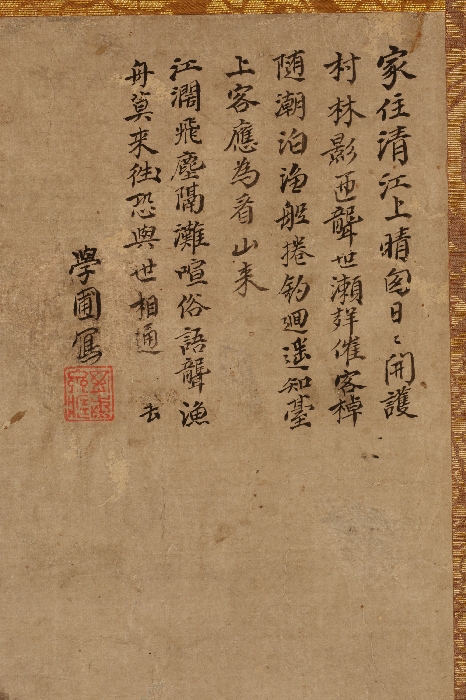 家住清江上晴窓日〻開護
村林影匝聾世瀬聲催客棹
随潮泊漁船捲釣廻遥知臺
上客應為看山来
江濶飛塵隔灘喧俗語聾漁
舟莫来徃恐與世相通 去
學圃寫